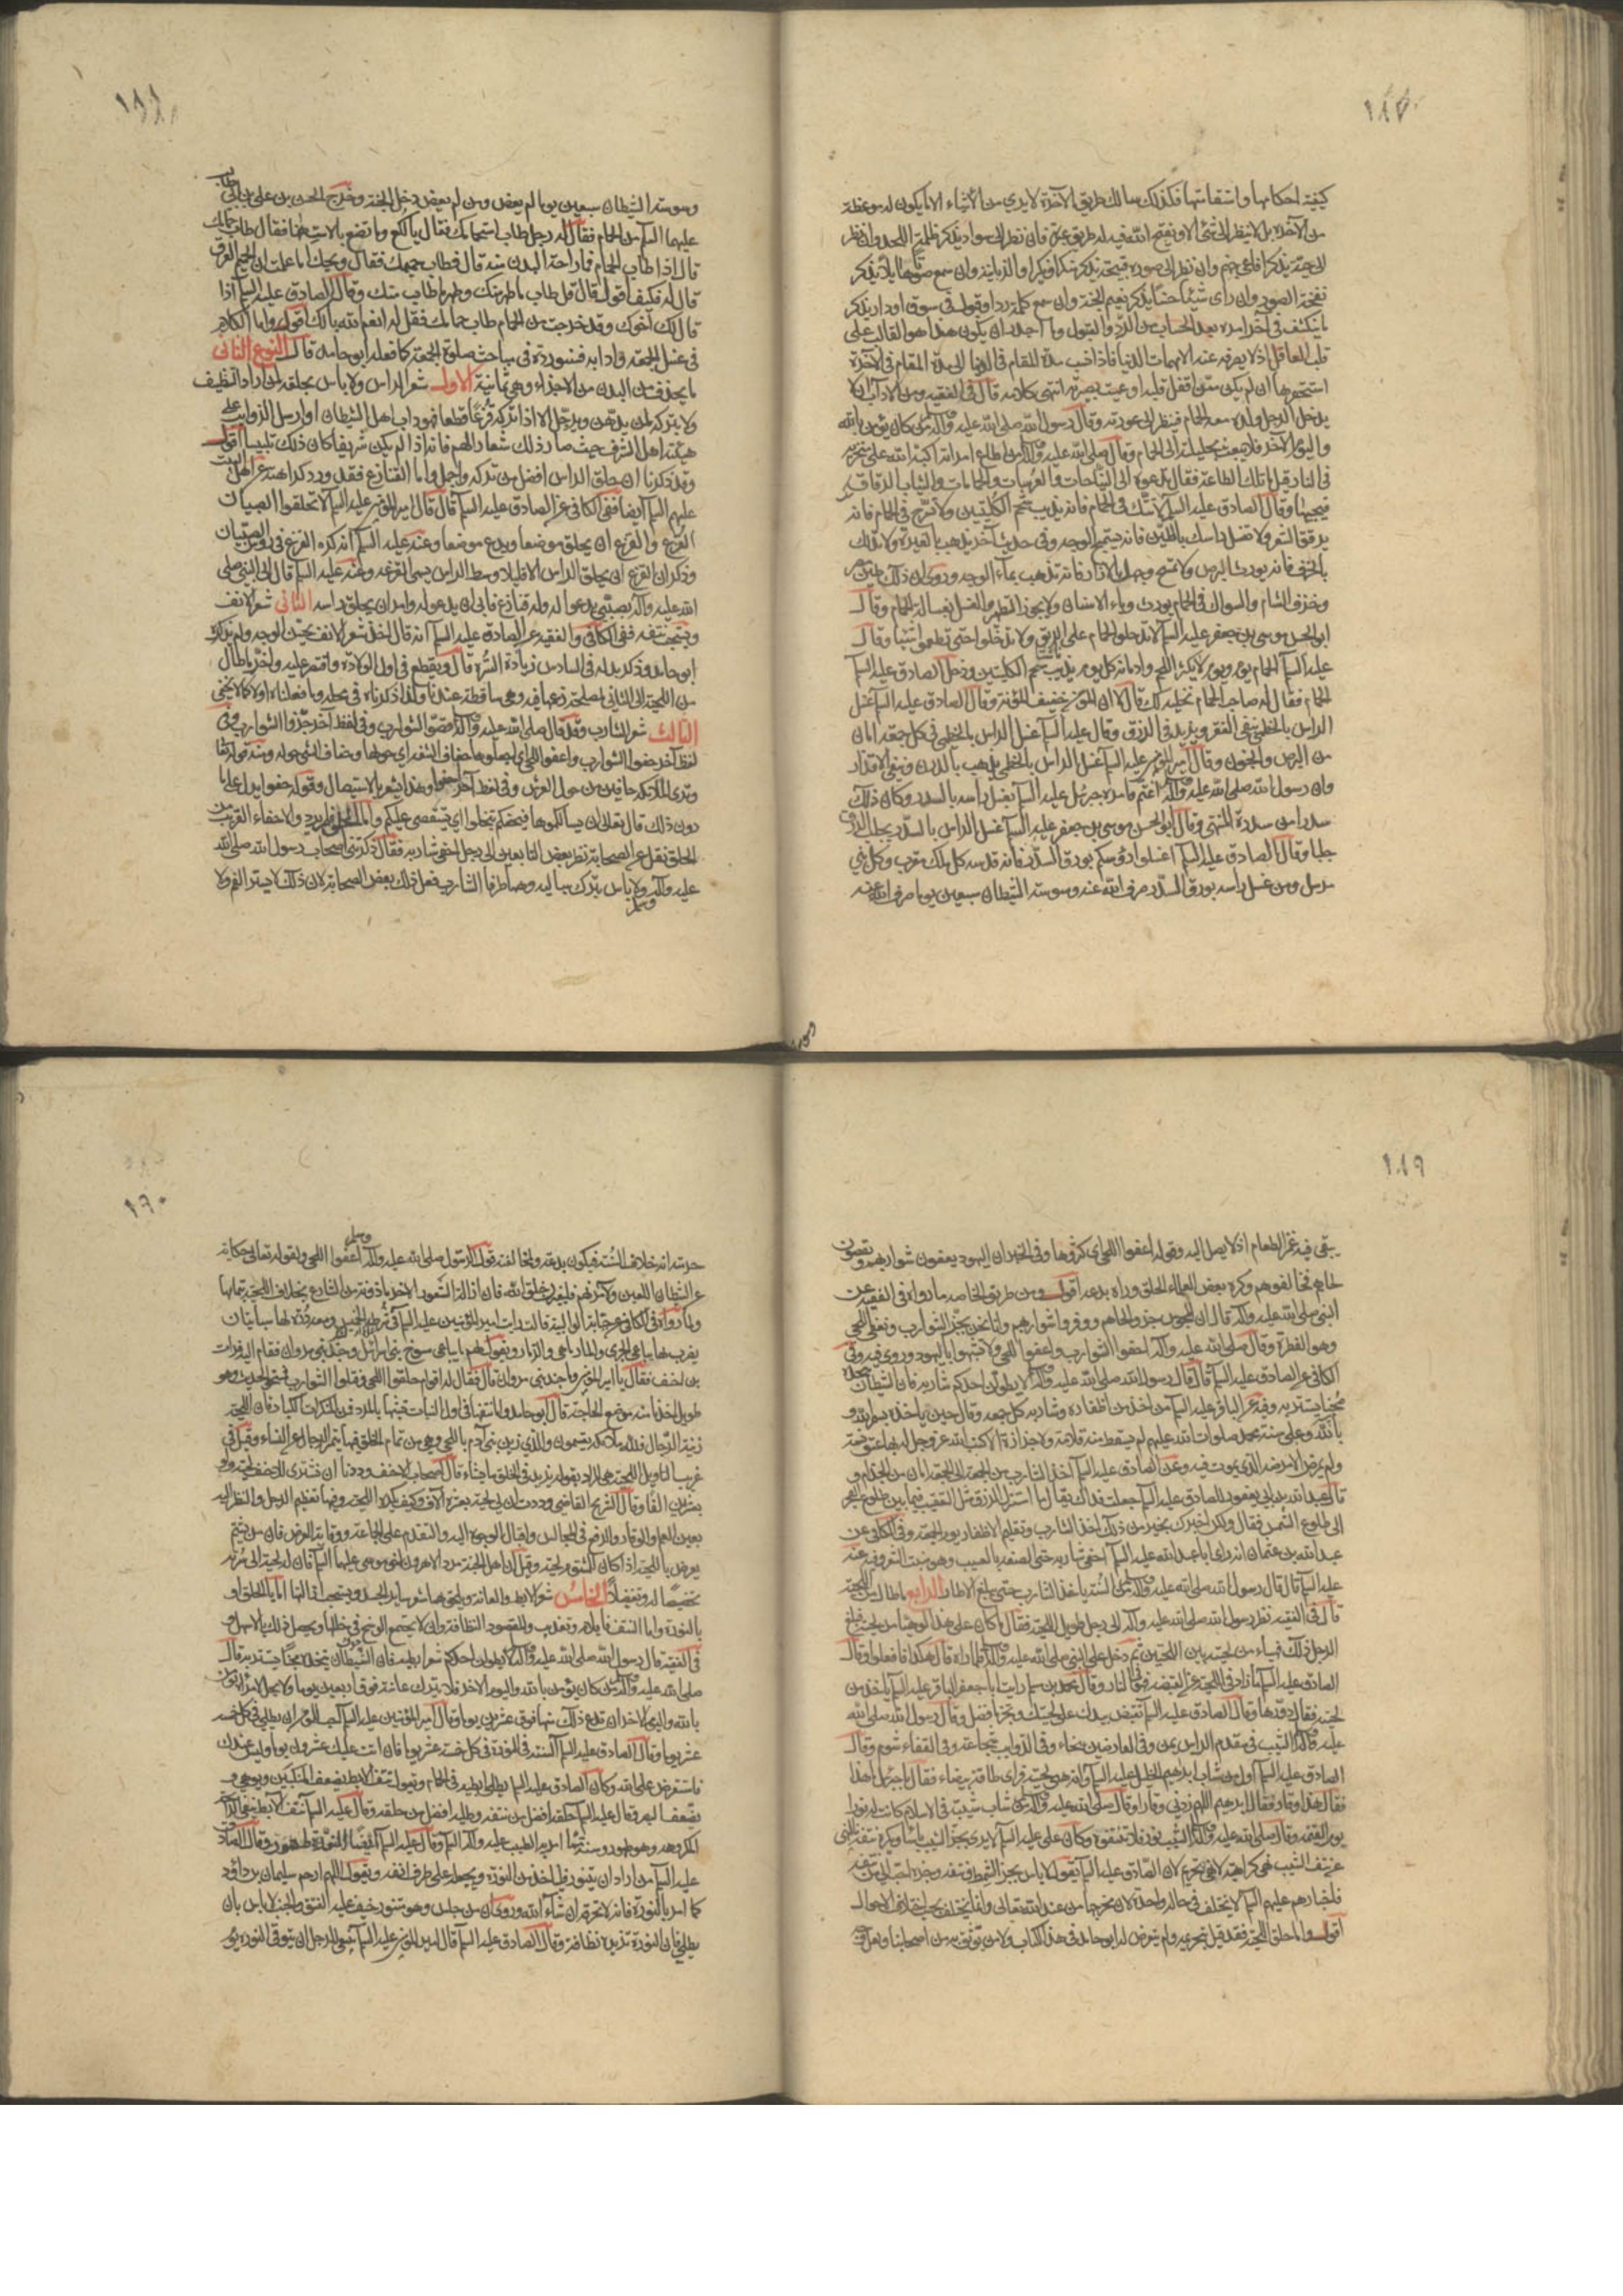 ١٨٧
كيفية احكامها واستقامتها فكذلك سالك طريق الآخرة لا يرى من الاشياء الا ما يكون له موعظة
من الآخرة بل لا ينظر الى شئ الا ويفتح الله فيه له طريق عبرة فان نظر الى سواد يذكر ظلمة اللحد وان نظر
الى حية يذكر افاعي جهنم وان نظر الى صورة قبيحة يذكر منكرا ونكيرا والزبانية وان سمع صوتا هايلا يذكر
نفخة الصور وان رأى شيئا حسنا يذكر نعيم الجنة وان سمع كلمة رد او قبول في سوق او دار يذكر
ما ينكشف في آخر امره بعد الحساب من الرد والقبول وما اجدر ان يكون هذا هو الغالب على
قلب العاقل اذ لا يصرفه عنه الا مهمات الدنيا فاذا نسب مدة المقام في الدنيا الى مدة المقام في الآخرة
استحقرها ان لم يكن ممن اقفل قلبه او عميت بصيرته انتهى كلامه قال في الفقيه ومن الآداب ان لا
يدخل الرجل ولده معه الحمام فينظر الى عورته وقال رسول الله صلى الله عليه وآله من كان يؤمن بالله
واليوم الآخر فلا يبعث بحليلته الى الحمام وقال صلى الله عليه وآله من اطاع امرأته اكبه الله على منخريه
في النار قيل ما تلك الطاعة فقال تدعوه الى النياحات والعرسات والحمامات والثياب الرقاق
فيجيبها وقال الصادق عليه السلم لا تتك في الحمام فانه يذيب شحم الكليتين ولا تسرح في الحمام فانه
يرقق الشعر ولا تغسل راسك بالطين فانه يسمج الوجه وفي حديث آخر يذهب بالغيرة ولا تدلك
بالخزف فانه يورث البرص ولا تمسح وجهك بالازار فانه يذهب بماء الوجه وروي ان ذلك طين مصر
وخزف الشام والسواك في الحمام يورث وباء الاسنان ولا يجوز التطهر والغسل بغسالة الحمام وقال
ابو الحسن موسى بن جعفر عليه السلم لا تدخلوا الحمام على الريق ولا تدخلوا حتى تطعموا شيئا وقال
عليه السلم الحمام يوم ويوم لا يكثر اللحم وادمانه كل يوم يذيب شحم الكليتين ودخل الصادق عليه السلم
الحمام فقال له صاحب الحمام نخليه لك قال لا ان المؤمن خفيف المؤنة وقال الصادق عليه السلم غسل
الراس بالخطمي ينفي الفقر ويزيد في الرزق وقال عليه السلم غسل الراس بالخطمي في كل جمعة امان
من البرص والجنون وقال امير المؤمنين عليه السلم غسل الراس بالخطمي يذهب بالدرن وينفي الاقذار
وان رسول الله صلى الله عليه وآله اغتم فامره جبرئيل عليه السلم بغسل راسه بالسدر وكان ذلك
سدرا من سدرة المنتهى وقال ابو الحسن موسى بن جعفر عليه السلم غسل الراس بالسدر يجلب الرزق
جلبا وقال الصادق عليه السلم اغسلوا رؤسكم بورق السدر فانه قدسه كل ملك مقرب وكل نبي
مرسل ومن غسل راسه بورق السدر صرف الله عنه وسوسة الشيطان سبعين يوما ومن صرف الله عنه
١٨٨
وسوسة الشيطان سبعين يوما لم يعص ومن لم يعص دخل الجنة وخرج الحسن بن علي بن ابي طالب
عليهما السلم من الحمام فقال له رجل طاب استحمامك فقال يا لكع وما تصنع بالاست هنا فقال طاب حمامك
قال اذا طاب الحمام فما راحة البدن منه قال فطاب حميمك فقال ويحك اما علمت ان الحميم العرق
قال له فكيف اقول قال قل طاب ما طهر منك وطهر ما طاب منك وقال الصادق عليه السلم اذا
قال لك اخوك وقد خرجت من الحمام طاب حمامك فقل له انعم الله بالك اقول واما الكلام
في غسل الجمعة وآدابه فسنورده في مباحث صلوة الجمعة كما فعله ابو حامد قال النوع الثاني
ما يحذف من البدن من الاجزاء وهي ثمانية الاول شعر الراس ولا باس بحلقه لمن اراد التنظيف
ولا بتركه لمن يدهن ويرجل الا اذا تركه قزعا قطعا فهو داب اهل الشيطان او ارسل الذوايب على
هيئة اهل الشرف حيث صار ذلك شعارا لهم فانه اذا لم يكن شريفا كان ذلك تلبيسا اقول
وقد ذكرنا ان حلق الراس افضل من تركه واجمل واما القنازع فقد ورد كراهته عن اهل البيت
عليهم السلم ايضا ففي الكافي عن الصادق عليه السلم قال قال امير المؤمنين عليه السلم لا تحلقوا الصبيان
القزع والقزع ان يحلق موضعا ويدع موضعا وعنه عليه السلم انه كره القزع في رؤس الصبيان
وذكر ان القزع ان يحلق الراس الا قليلا وسط الراس يسمى القزعة وعنه عليه السلم قال اتي النبي صلى
الله عليه وآله بصبي يدعو له وله قنازع فابى ان يدعو له وامر ان يحلق راسه الثاني شعر الانف
ويستحب نتفه ففي الكافي والفقيه عن الصادق عليه السلم انه قال اخذ شعر الانف يحسن الوجه ولم يذكره
ابو حامد وذكر بدله في السادس زيادة السرة قال ويقطع في اول الولادة واقتصر عليه واخر ما طال
من اللحية الى الثاني لمصلحة زعمها فيه وهي ساقطة عندنا فلهذا ذكرناه في محله وما فعلناه اولا كما لا يخفى
الثالث شعر الشارب وقد قال صلى الله عليه وآله قصوا الشوارب وفي لفظ آخر جزوا الشوارب وفي
لفظ آخر حفوا الشوارب واعفوا اللحى اي اجعلوها حفاف الشفة اي حولها وحفاف الشئ حوله ومنه قوله تعالى
وترى الملائكة حافين من حول العرش وفي لفظ آخر احفوا وهذا يشعر بالاستيصال وقوله حفوا يدل على ما
دون ذلك قال تعالى ان يسألكموها فيحفكم تبخلوا اي يستقصي عليكم واما الحلق فلم يرد والاحفاء القريب من
الحلق نقل عن الصحابة نظر بعض التابعين الى رجل احفى شاربه فقال ذكرتني اصحاب رسول الله صلى الله
عليه وآله وسلم ولا باس بترك سباليه وهما طرفا الشارب فعل ذلك بعض الصحابة لان ذلك لا يستر الفم ولا
١٨٩
يبقى فيه غمر الطعام اذ لا يصل اليه وقوله اعفوا اللحى اي كثروها وفي الخبر ان اليهود يعفون شواربهم ويقصون
لحاهم فخالفوهم وكره بعض العلماء الحلق ورآه بدعة اقول ومن طريق الخاصة ما رواه في الفقيه عن
النبي صلى الله عليه وآله قال ان المجوس جزوا لحاهم ووفروا شواربهم وانا نحن نجز الشوارب ونعفي اللحى
وهو الفطرة وقال صلى الله عليه وآله احفوا الشوارب واعفوا اللحى ولا تشبهوا باليهود وروى فيه وفي
الكافي عن الصادق عليه السلم قال قال رسول الله صلى الله عليه وآله لا يطولن احدكم شاربه فان الشيطان يتخذه
مخبأ يستتر به وفيه عن الباقر عليه السلم من اخذ من اظفاره وشاربه كل جمعة وقال حين ياخذه بسم الله و
بالله وعلى سنة محمد صلوات الله عليهم لم يسقط منه قلامة ولا جزازة الا كتب الله عز وجل له بها عتق نسمة
ولم يمرض الا مرضه الذي يموت فيه وعن الصادق عليه السلم اخذ الشارب من الجمعة الى الجمعة امان من الجذام و
قال عبد الله بن ابي يعفور للصادق عليه السلم جعلت فداك يقال ما استنزل الرزق مثل التعقيب فيما بين طلوع الفجر
الى طلوع الشمس فقال ولكن اخبرك بخير من ذلك اخذ الشارب وتقليم الاظفار يوم الجمعة وفي الكافي عن
عبد الله بن عثمان انه راى ابا عبد الله عليه السلم احفى شاربه حتى الصقه بالعسيب وهو منبت الشعر وفيه عنه
عليه السلم قال قال رسول الله صلى الله عليه وآله من السنة ياخذ الشارب حتى يبلغ الاطار الرابع ما طال من اللحية
قال في الفقيه نظر رسول الله صلى الله عليه وآله الى رجل طويل اللحية فقال ما كان على هذا لو هيأ من لحيته فبلغ
الرجل ذلك فهيأ من لحيته بين اللحيتين ثم دخل على النبي صلى الله عليه وآله فلما رآه قال هكذا فافعلوا وقال
الصادق عليه السلم ما زاد في اللحية عن القبضة فهو في النار وقال محمد بن مسلم رايت ابا جعفر الباقر عليه السلم ياخذ من
لحيته فقال دورها وقال الصادق عليه السلم تقبض بيدك على لحيتك وتجز ما فضل وقال رسول الله صلى الله
عليه وآله الشيب في مقدم الراس يمن وفي العارضين سخاء وفي الذوايب شجاعة وفي القفاء شوم وقال
الصادق عليه السلم اول من شاب ابرهيم الخليل عليه السلم وانه ثنى لحيته فراى طاقة بيضاء فقال يا جبرئيل ما هذا
فقال هذا وقار فقال ابرهيم اللهم زدني وقارا وقال صلى الله عليه وآله من شاب شيبة في الاسلام كانت له نورا
يوم القيمة وقال صلى الله عليه وآله الشيب نور فلا تنتفوه وكان علي عليه السلم لا يرى بجز الشيب باسا ويكره نتفه فالنهي
عن نتف الشيب نهي كراهية لا نهي تحريم لان الصادق عليه السلم يقول لا باس بجز الشمط ونتفه وجزه احب الي من نتفه
فاخبارهم عليهم السلم لا تختلف في حالة واحدة لان مخرجها من عند الله تعالى وانما تختلف بحسب اختلاف الاحوال
اقول واما حلق اللحية فقد قيل بتحريمه ولم يتعرض له ابو حامد في هذا الكتاب ولا من يوثق به من اصحابنا ولعل وجه
١٩٠
حرمته انه خلاف السنة فيكون بدعة ولمخالفته قول الرسول صلى الله عليه وآله وسلم اعفوا اللحى ولقوله تعالى حكاية
عن الشيطان اللعين ولآمرنهم فليغيرن خلق الله فان ازالة الشعور الاخر ماذونة من الشارع بخلاف اللحية بتمامها
ولما رواه في الكافي عن حبابة الوالبية قالت رايت امير المؤمنين عليه السلم في شرطة الخميس ومعه درة لها سبابتان
يضرب بها بياعي الجري والمارماهي والزمار ويقول لهم يا بياعي مسوخ بني اسرائيل وجند بني مروان فقام اليه فرات
بن احنف فقال يا امير المؤمنين وما جند بني مروان قال فقال له اقوام حلقوا اللحى وفتلوا الشوارب فمسخوا الحديث وهو
طويل اخذنا منه موضع الحاجة قال ابو حامد واما نتفها في اول النبات تشبها بالمرد فمن المنكرات الكبار فان اللحية
زينة الرجال فلله ملائكة يقسمون والذي زين بني آدم باللحى وهي من تمام الخلق وبها يتميز الرجال عن النساء وقيل في
غريب التاويل اللحية هي المراد بقوله يزيد في الخلق ما يشاء قال اصحاب الاحنف وددنا ان نشتري للاحنف لحية ولو
بعشرين الفا وقال شريح القاضي وددت ان لي لحية بعشرة آلاف وكيف يكره اللحية وفيها تعظيم الرجل والنظر اليه
بعين العلم والوقار والرفع في المجالس واقبال الوجوه اليه والتقدم على الجماعة ووقاية العرض فان من يشتم
يعرض باللحية اذا كان للمشتوم لحية وقيل ان اهل الجنة مرد الا هرون اخي موسى عليهما السلم فان له لحية الى سرته
تخصيصا له وتفضيلا الخامس شعر الابط والعانة ويلحق بهما شعر ساير الجسد ويستحب ازالتها اما بالحلق او
بالنورة واما النتف فايلام وتعذيب والمقصود النظافة وان لا يجتمع الوسخ في خللها ويحصل ذلك بالاسهل و
في الفقيه قال رسول الله صلى الله عليه وآله لا يطولن احدكم شعر ابطيه فان الشيطان يتخذه مخبأ يستتر به وقال
صلى الله عليه وآله من كان يؤمن بالله واليوم الآخر فلا يترك عانته فوق اربعين يوما ولا يحل لامراة تؤمن
بالله واليوم الآخر ان تدع ذلك منها فوق عشرين يوما وقال امير المؤمنين عليه السلم احب للمؤمن ان يطلي في كل خمسة
عشر يوما وقال الصادق عليه السلم السنة في النورة في كل خمسة عشر يوما فان اتت عليك عشرون يوما وليس عندك
فاستقرض على الله وكان الصادق عليه السلم يطلي ابطيه في الحمام ويقول نتف الابط يضعف المنكبين ويوهي و
يضعف البصر وقال عليه السلم حلقه افضل من نتفه وطليه افضل من حلقه وقال علي عليه السلم نتف الابط ينفي الرائحة
المكروهة وهو طهور وسنة مما امر به الطيب عليه وآله السلم وقال علي عليه السلم ايضا النورة طهور وقال الصادق
عليه السلم من اراد ان يتنور فلياخذ من النورة ويجعله على طرف انفه ويقول اللهم ارحم سليمان بن داود
كما امر بالنورة فانه لا تحرقه ان شاء الله وروي ان من جلس وهو متنور خيف عليه الفتق والجنب لا باس بان
يطلي فان النورة تزيده نظافة وقال الصادق عليه السلم قال امير المؤمنين عليه السلم ينبغي للرجل ان يتوقى النورة يوم